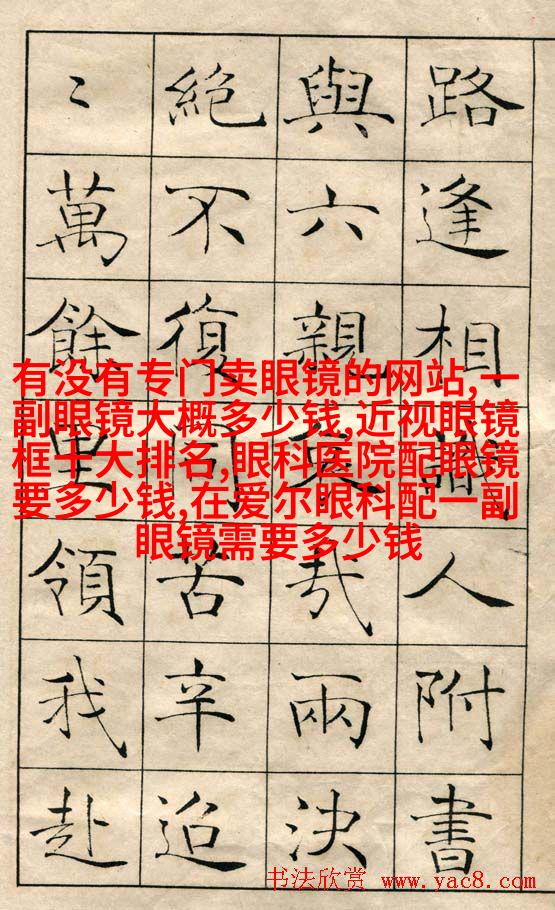 路逢相識人附書
與六親哀哉兩決
絕不復同苦辛迢
〻萬餘里領我赴
有没有专门卖眼镜的网站,一
副眼镜大概多少钱,近视眼镜
框十大排名,眼科医院配眼镜
要多少钱,在爱尔眼科配一副
眼镜需要多少钱
书法欣赏 www.yac8.com